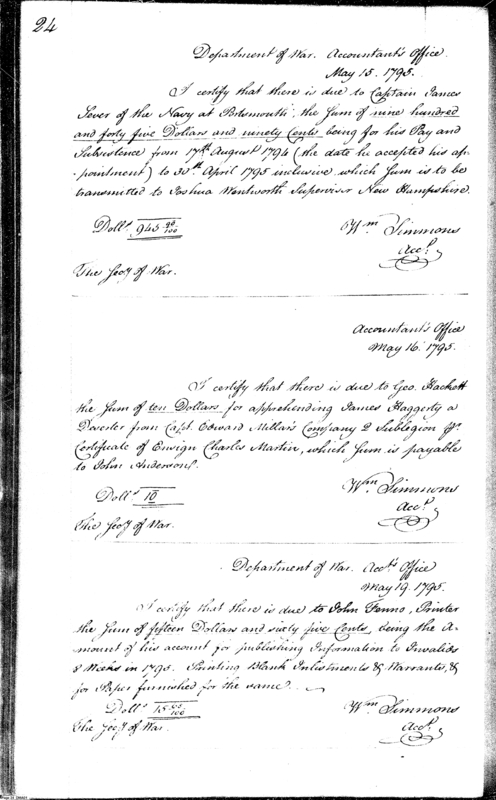 24
Department of War. Accountant's Office
May 15. 1795.
I certify that there is due to Captain James
Sever of the Navy at Portsmouth, the Sum of nine hundred
and forty five Dollars and ninety Cents being for his Pay and
Subsistence from 17th August 1794 (the date he accepted his ap-
pointment) to 30th April 1795 inclusive which Sum is to be
transmitted to Joshua Wentworth Supervisor New Hampshire.
Dolls 945 90/100
Wm Simmons
Acct.
The Secy of War.
Accountant's Office
May 16. 1795.
I certify that there is due to Geo. Hackett
the Sum of ten Dollars for apprehending James Haggerty a
Deserter from Capt. Edward Millar's Company 2 Sublegion pr.
Certificate of Ensign Charles Martin, which Sum is payable
to John Anderson.
Dolls 10
Wm Simmons
Acct.
The Secy of War.
Department of War. Accts Office
May 19. 1795.
I certify that there is due to John Fenno, Printer
the Sum of fifteen Dollars and sixty five Cents, being the A-
mount of his account for publishing Information to Invalids
8 Weeks in 1795. Printing Blank Inlistments & Warrants, &
for Paper furnished for the same.
Dolls 15 65/100
Wm Simmons
Acct.
The Secy of War.